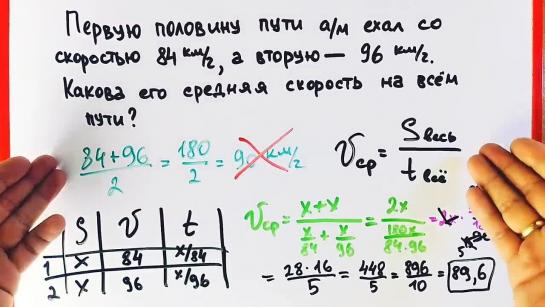 Первую половину пути а/м ехал со
скоростью 84 км/ч, а вторую — 96 км/ч.
Какова его средняя скорость на всём
пути?
84+96/2 = 180/2 = 90 км/ч
Vср = Sвесь/tвсё
S V t
1 x 84 x/84
2 x 96 x/96
Vср = x+x/(x/84 + x/96) = 2x/(180x/84·96) =
= 28·16/5 = 448/5 = 896/10 = 89,6